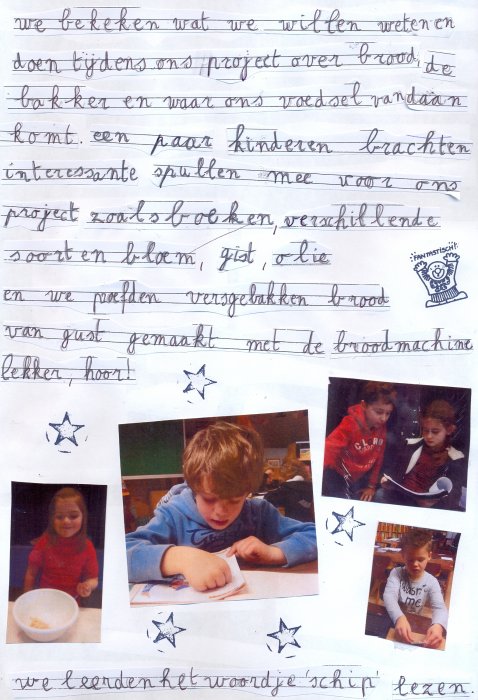 we bekeken wat we willen weten en
doen tijdens ons project over brood, de
bakker en waar ons voedsel vandaan
komt. een paar kinderen brachten
interessante spullen mee voor ons
project zoals boeken, verschillende
soorten bloem, gist, olie
FANTASTISCH!
en we proefden versgebakken brood
van gust gemaakt met de broodmachine
lekker, hoor!
we leerden het woordje 'schip' lezen.